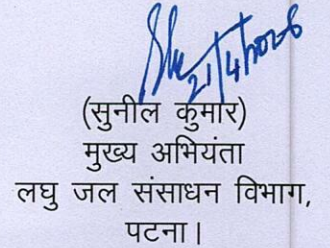 21/4/2026
(सुनील कुमार)
मुख्य अभियंता
लघु जल संसाधन विभाग,
पटना।